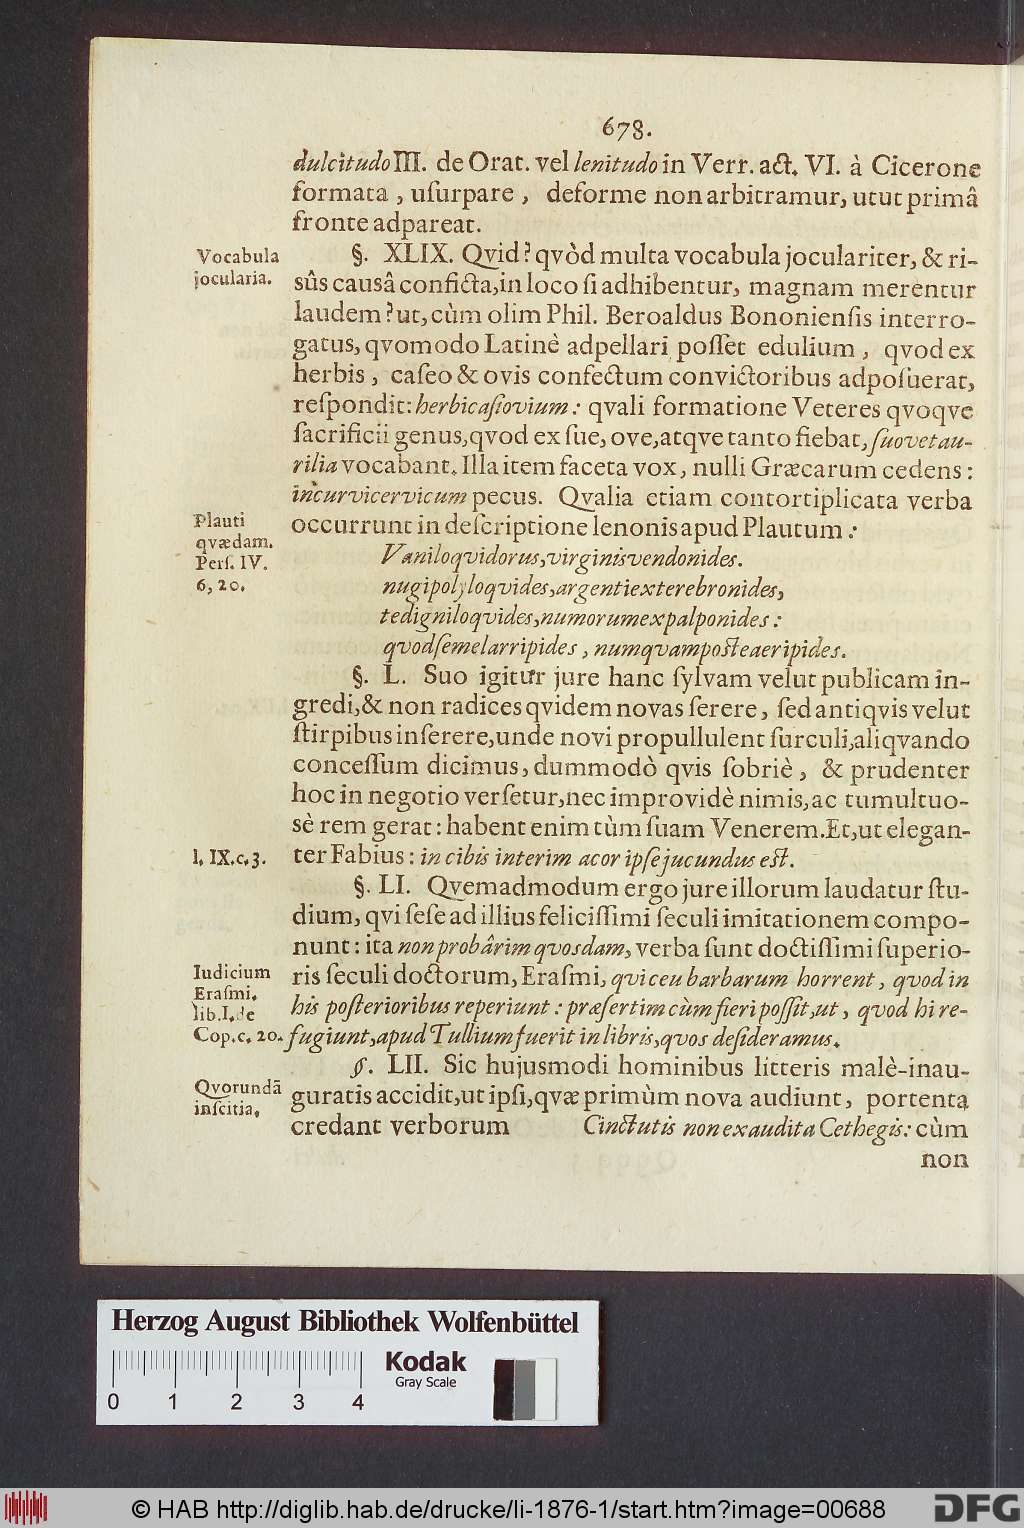 678.
dulcitudo III. de Orat. vel lenitudo in Verr. act. VI. à Cicerone
formata, uſurpare, deforme non arbitramur, utut primâ
fronte adpareat.
Vocabula
jocularia.
§. XLIX. Qvid? qvòd multa vocabula joculariter, & ri-
sûs causâ conficta, in loco ſi adhibentur, magnam merentur
laudem? ut, cùm olim Phil. Beroaldus Bononienſis interro-
gatus, qvomodo Latinè adpellari poſſet edulium, qvod ex
herbis, caſeo & ovis confectum convictoribus adpoſuerat,
reſpondit: herbicaſiovium: qvali formatione Veteres qvoqve
ſacrificii genus, qvod ex ſue, ove, atqve tanto fiebat, ſuovetau-
rilia vocabant. Illa item faceta vox, nulli Græcarum cedens:
incurvicervicum pecus. Qvalia etiam contortiplicata verba
occurrunt in deſcriptione lenonis apud Plautum:
Plauti
qvædam.
Perſ. IV.
6, 20.
Vaniloqvidorus, virginisvendonides.
nugipolyloqvides, argentiexterebronides,
tedigniloqvides, numorumexpalponides:
qvodſemelarripides, numqvampoſteaeripides.
§. L. Suo igitur jure hanc ſylvam velut publicam in-
gredi, & non radices qvidem novas ſerere, ſed antiqvis velut
ſtirpibus inſerere, unde novi propullulent ſurculi, aliqvando
conceſſum dicimus, dummodò qvis ſobriè, & prudenter
hoc in negotio verſetur, nec improvidè nimis, ac tumultuo-
sè rem gerat: habent enim tùm ſuam Venerem. Et, ut elegan-
l. IX. c. 3.
ter Fabius: in cibis interim acor ipſe jucundus eſt.
§. LI. Qvemadmodum ergo jure illorum laudatur ſtu-
dium, qvi ſeſe ad illius feliciſſimi ſeculi imitationem compo-
nunt: ita non probârim qvosdam, verba ſunt doctiſſimi ſuperio-
Iudicium
Eraſmi.
lib. I. de
Cop. c. 20.
ris ſeculi doctorum, Eraſmi, qvi ceu barbarum horrent, qvod in
his poſterioribus reperiunt: præſertim cùm fieri poſſit, ut, qvod hi re-
fugiunt, apud Tullium fuerit in libris, qvos deſideramus.
Qvorundã
inſcitia.
§. LII. Sic hujusmodi hominibus litteris malè-inau-
guratis accidit, ut ipſi, qvæ primùm nova audiunt, portenta
credant verborum Cinctutis non exaudita Cethegis: cùm
non
Herzog August Bibliothek Wolfenbüttel
Kodak
Gray Scale
0 1 2 3 4
© HAB http://diglib.hab.de/drucke/li-1876-1/start.htm?image=00688
DFG